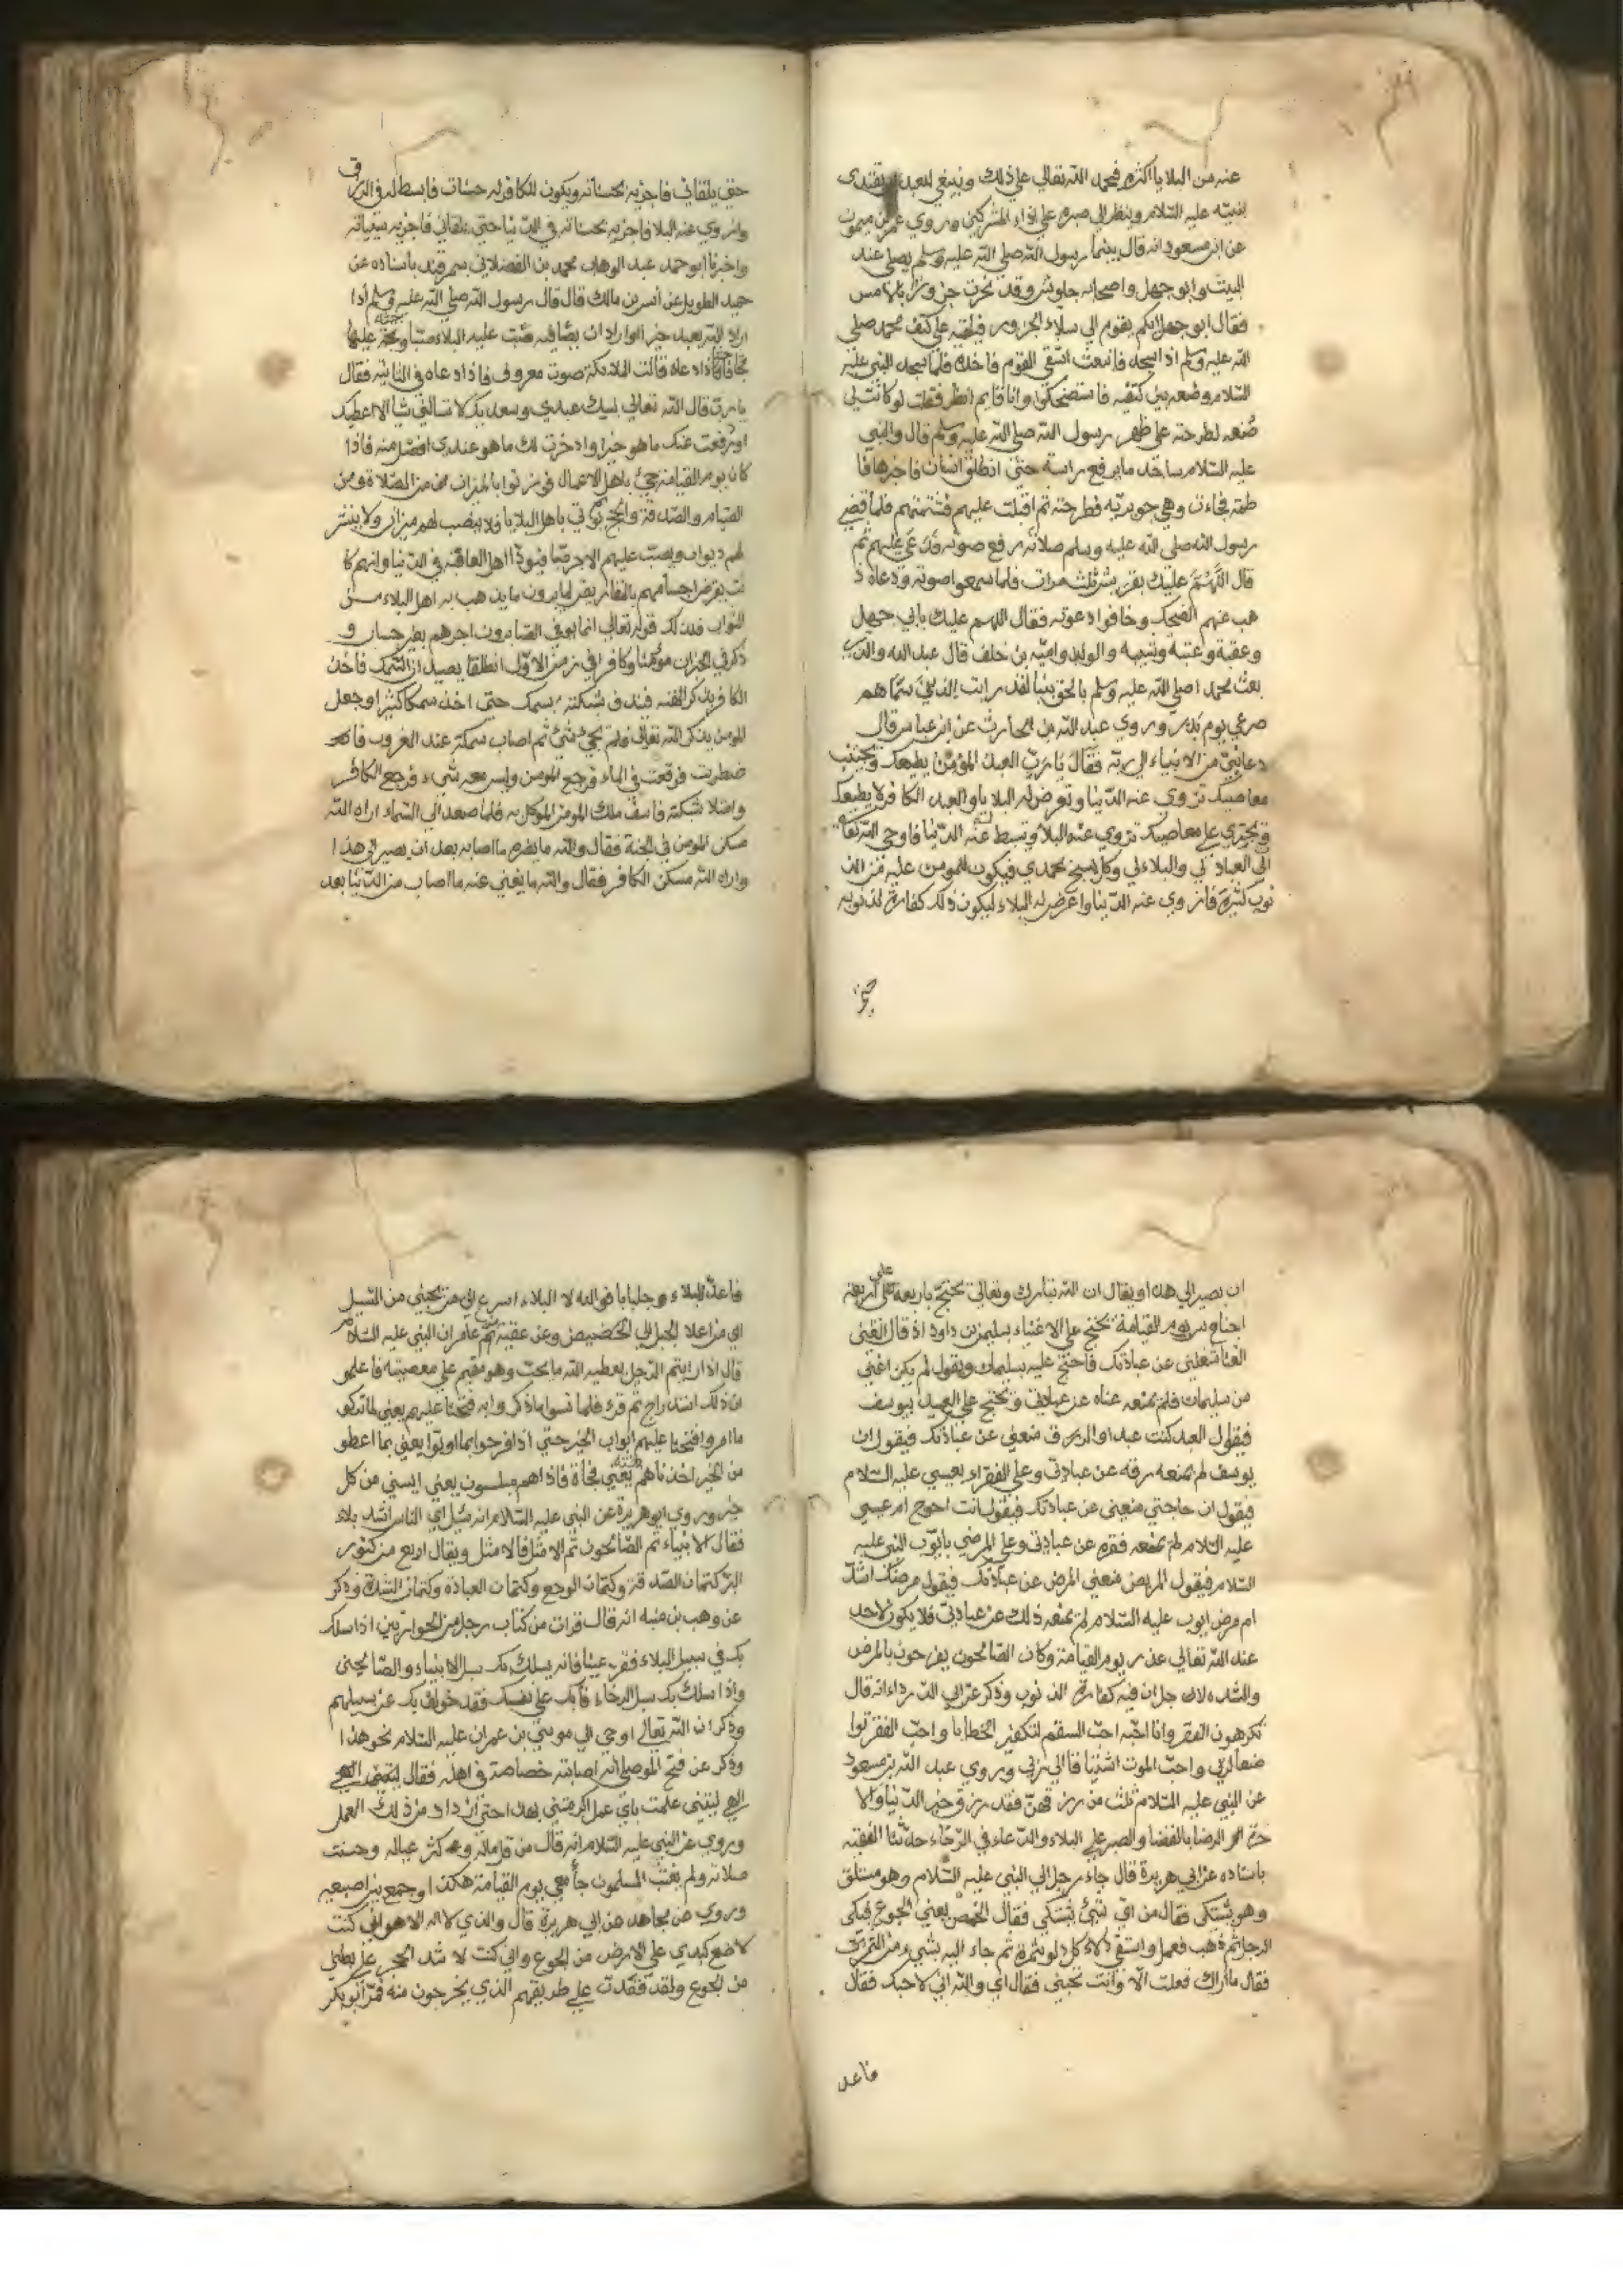 عنه من البلايا اكثره فحمد الله تعالي علي ذلك وينبغي للعبد يقتدى
بنبيه عليه السلام وينظر الي صبره علي اذاء المشركين وروي عمر بن ميمون
عن ابن مسعود انه قال بينما رسول الله صلي الله عليه وسلم يصلي عند
البيت وابو جهل واصحابه جلوس وقد نحرت جزورا بالامس
فقال ابو جهل ايكم يقوم الي سلاء الجزور فيلقه علي كتف محمد صلي
الله عليه وسلم اذا سجد فانبعث اشقي القوم فاخذه فلما سجد النبي عليه
السلام وضعه بين كتفيه فاستضحكوا وانا قايم انظر فقلت لو كانت لي
منعه لطرحته علي ظهر رسول الله صلي الله عليه وسلم قال والنبي
عليه السلام ساجد ما يرفع راسه حتي انطلق انسان فاخبرها فا
طمة فجاءت وهي جويرية فطرحته ثم اقبلت عليهم فشتمتهم فلما قضي
رسول الله صلي الله عليه وسلم صلاته رفع صوته فدعي عليهم ثم
قال اللهم عليك بقريش ثلث مرات فلما سمعوا صوته ودعاه ذ
هب عنهم الضحك وخافوا دعوته فقال اللهم عليك بابي جهل
وعقبة وعتبة وشيبه والوليد وامية بن خلف قال عبد الله والذي
بعث محمدا صلي الله عليه وسلم بالحق نبيا لقد رايت الذين سماهم
صرعي يوم بدر وروي عبد الله بن الحارث عن ابن عباس قال
دعا نبي من الانبياء الي ربه فقال يا رب العبد المؤمن يطيعك ويجتنب
معاصيك تزوي عنه الدنيا وتعرض له البلايا والعبد الكافر لا يطيعك
ويجتري علي معاصيك تزوي عنه البلا وتبسط عنه الدنيا فاوحي الله تعا
الي العباد لي والبلاء لي وكل يسبح بحمدي فيكون المومن عليه من الذ
نوب كثيرة فازوي عنه الدنيا واعرض له البلاء ليكون ذلك كفارة لذنوبه
حتي
حتي يلقاني فاجزيه بحسناته ويكون للكافر له حسنات فابسط له في الرزق
وازوي عنه البلا فاجزيه بحسناته في الدنيا حتي يلقاني فاجزيه بسيئاته
واخبرنا ابو حمد عبد الوهاب محمد بن الفضلاني بسمرقند باسناده عن
حميد الطويل عن انس بن مالك قال قال رسول الله صلي الله عليه وسلم اذا
اراد الله بعبد خيرا او اراد ان يصافيه صب عليه البلاء صبا
فاذا دعاه قالت الملائكة صوت معروف فاذا دعاه في الثانية فقال
يا رب قال الله تعالي لبيك عبدي وسعديك لا تسالني شيا الا اعطيك
او رفعت عنك ما هو خيرا وادخرت لك ما هو عندي افضل منه فاذا
كان يوم القيامة جيئ باهل الاعمال فوزنوا بالميزان من الصلاة ومن
الصيام والصدقة والحج ثم يؤتي باهل البلايا فلا ينصب لهم ميزان ولا ينشر
لهم ديوان ويصب عليهم الاجر صبا فيودا اهل العاقبة في الدنيا وانهم كا
نت يقرض اجسامهم بالمقاريض لما يرون ما يذهب به اهل البلاء من
الثواب فذلك قوله تعالي انما يوفي الصابرون اجرهم بغير حساب و
ذكر في الخبر ان مؤمنا وكافرا في زمن الاول انطلقا يصيدان السمك فاخذ
الكافر يذكر الهته فيدف شبكته بسمك حتي اخذ سمكا كثيرا وجعل
المومن يذكر الله تعالي فلم يجئ شئ ثم اصاب سمكة عند الغروب فا
ضطربت فوقعت في الماء فرجع المومن وليس معه شيء ورجع الكافر
وامتلا شبكته فاسف ملك المومن الموكل به فلما صعد الي السماء اراه الله
مسكن المومن في الجنة فقال والله ما يضره ما اصابه بعد ان يصير الي هذا
واراه الله مسكن الكافر فقال والله ما يغني عنه ما اصاب من الدنيا بعد
ان يصير الي هذا ويقال ان الله تبارك وتعالي يحتج باربعة علي اربعة
اجناس يوم القيامة يحتج علي الاغنياء بسليمن بن داود اذ قال الغني
الغنا شغلني عن عبادتك فاحتج عليه بسليمان ويقول لم يكن اغني
من سليمان فلم يمنعه غناه عن عبادتي ويحتج علي العبيد بيوسف
فيقول العبد كنت عبدا والرق منعني عن عبادتك فيقول ان
يوسف لم يمنعه رقه عن عبادتي وعلي الفقراء بعيسي عليه السلام
فيقول ان حاجتي منعني عن عبادتك فيقول انت احوج ام عيسي
عليه السلام لم يمنعه فقره عن عبادتي وعلي المرضي بايوب النبي عليه
السلام فيقول المريض منعني المرض عن عبادتك فيقول مرضك اشد
ام مرض ايوب عليه السلام لم يمنعه ذلك عن عبادتي فلا يكون لاحد
عند الله تعالي عذر يوم القيامة وكان الصالحون يفرحون بالمرض
والشده لاجل ان فيه كفارة الذنوب وذكر عن ابي الدرداء انه قال
تكرهون الفقر وانا احبه احب السقم لتكفير الخطايا واحب الفقر تواضعا
لربي واحب الموت اشتياقا الي ربي وروي عبد الله بن مسعود
عن النبي عليه السلام ثلث من رزقهن فقد رزق خير الدنيا والا
خرة الرضا بالقضا والصبر علي البلاء والدعاء في الرخاء حدثنا الفقيه
باسناده عن ابي هريرة قال جاء رجل الي النبي عليه السلام وهو مستلق
وهو يشتكي فقال من اي شئ تشتكي فقال الخمص يعني الجوع فبكي
الرجل ثم ذهب فعمل واستقي دلاء كل دلو بتمرة ثم جاء اليه بشيء من التمر
فقال ما اراك فعلت الا وانت تحبني فقال اي والله اني لاحبك فقال
فاعد
فاعد للبلاء وجلبابا فوالله لا البلاء اسرع الي من يحبني من السيل
اي من اعلا الجبل الي الحضيض وعن عقبة بن عامر ان النبي عليه السلام
قال اذا رايتم الرجل يعطيه الله ما يحب وهو مقيم علي معصيته فاعلمو
ان ذلك استدراج ثم قرء فلما نسوا ما ذكروا به فتحنا عليهم يعني لما تركو
ما امروا فتحنا عليهم ابواب الخير حتي اذا فرحوا بما اوتوا يعني بما اعطو
من الخير اخذناهم بغتة يعني فجأة فاذا هم مبلسون يعني ايسين من كل
خير وروي ابو هريرة عن النبي عليه السلام انه سئل اي الناس اشد بلاء
فقال الانبياء ثم الصالحون ثم الامثل فالامثل ويقال اربع من كنوز
البر كتمان الصدقة وكتمان الوجع وكتمان العبادة وكتمان الشدة وذكر
عن وهب بن منبه انه قال قرات من كتاب رجل من الحواريين اذا سلك
بك في سبيل البلاء فقر عينا فانه يسلك بك سبل الانبياء والصالحين
واذا سلك بك سبل الرخاء فابك علي نفسك فقد خولف بك عن سبيلهم
وذكر ان الله تعالي اوحي الي موسي بن عمران عليه السلام نحو هذا
وذكر عن فتح الموصلي انه اصابته خصاصة في اهله فقال
الهي ليتني علمت باي عمل اكرمتني بهذا حتي ازداد من ذلك العمل
وروي عن النبي عليه السلام انه قال من قل ماله وكثر عياله وحسنت
صلاته ولم يغتب المسلمون جاء معي يوم القيامة هكذا وجمع بين اصبعيه
وروي عن مجاهد عن ابي هريرة قال والذي لا اله الا هو اني كنت
لاضع كبدي علي الارض من الجوع واني كنت لا شد الحجر علي بطني
من الجوع ولقد قعدت علي طريقهم الذي يخرجون منه فمر ابو بكر